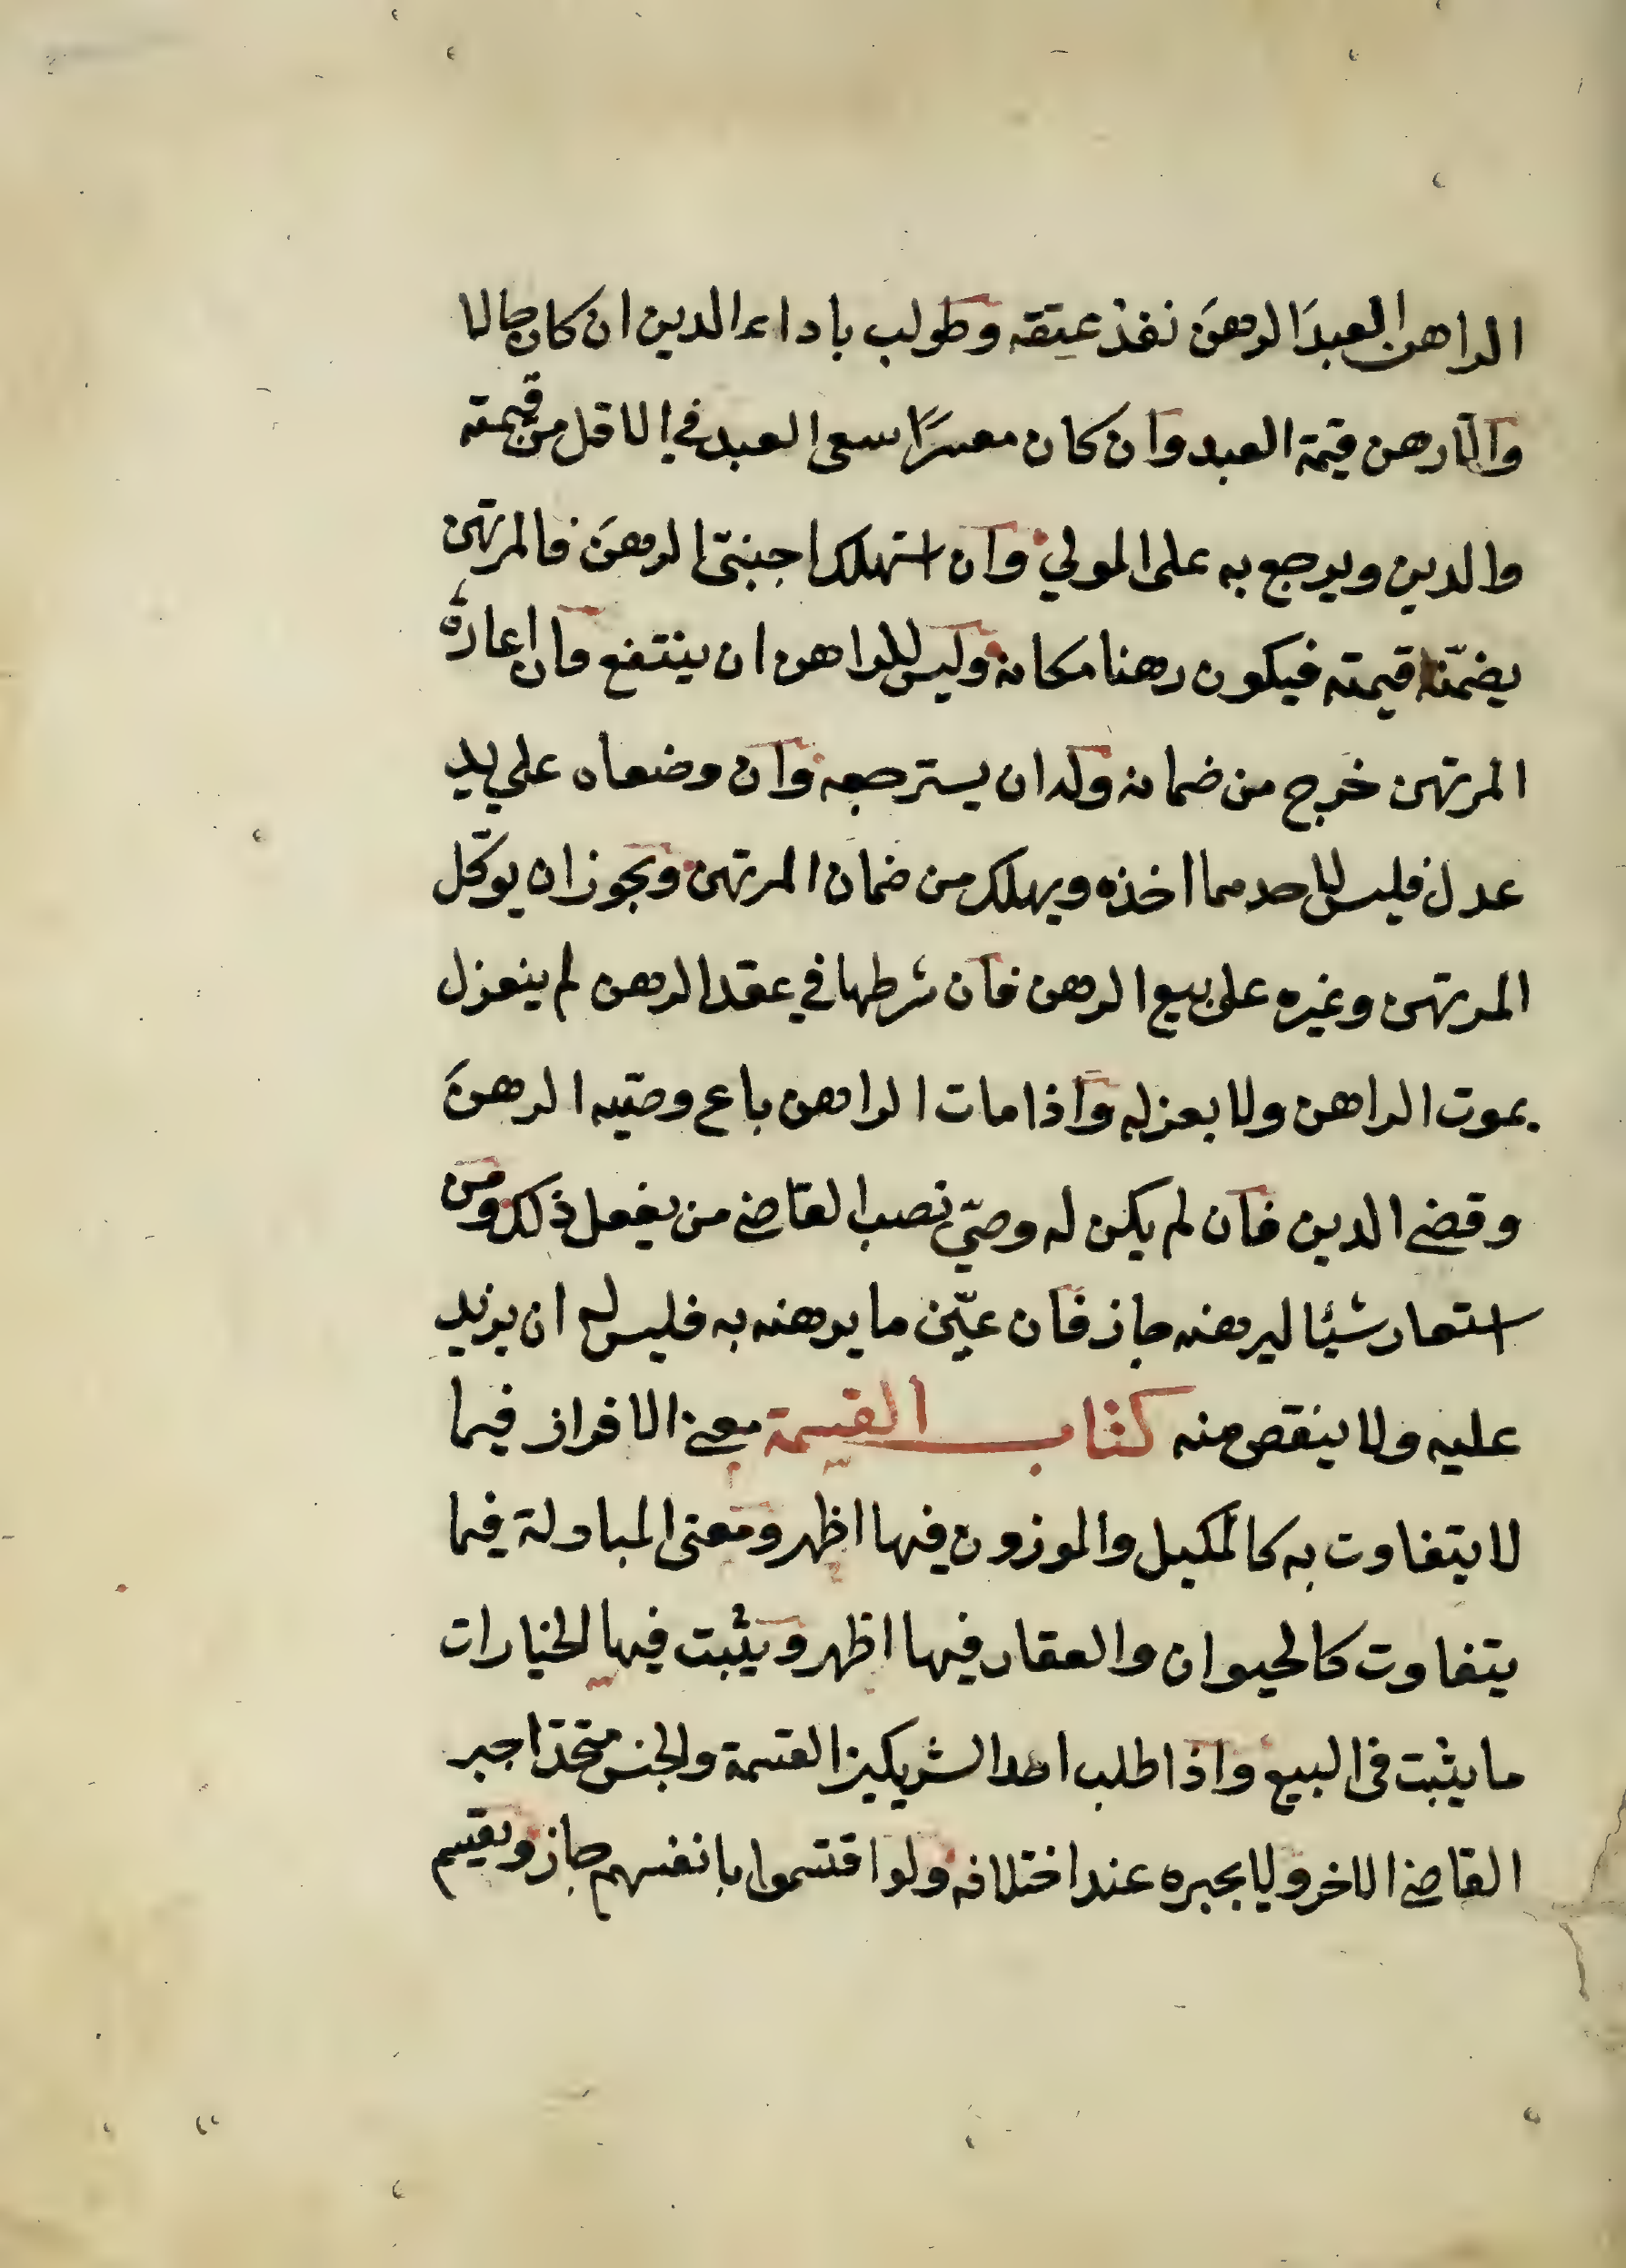 الراهن العبدَ الرهنَ نفذ عتقه وطولب باداء الدين ان كان حالا
والا رهن قيمة العبد وان كان معسرًا سعى العبد في الاقل من قيمته
والدين ويرجع به على المولي وان استهلك اجنبيّ الرهنَ فالمرتهن
يضمّنه قيمته فيكون رهنا مكانه وليس للراهن ان ينتفع فان اعارهُ
المرتهن خرج من ضمانه وله ان يسترجعه وان وضعاه علي يد
عدل فليس لاحدهما اخذه ويهلك من ضمان المرتهن ويجوز ان يوكّل
المرتهن وغيره على بيع الرهن فان شرطها في عقد الرهن لم ينعزل
بموت الراهن ولا بعزله واذا مات الراهن باع وصيّه الرهنَ
وقضى الدين فان لم يكن له وصيّ نصب القاضي من يفعل ذلك ومن
استعار شيئا ليرهنه جاز فان عيّن ما يرهنه به فليس له ان يزيد
عليه ولا ينقص منه كتاب القسمة معنى الافراز فيما
لا يتفاوت به كالمكيل والموزون فيها اظهر ومعنى المبادلة فيما
يتفاوت كالحيوان والعقار فيها اظهر ويثبت فيها الخيارات
ما يثبت في البيع واذا طلب احد الشريكين القسمة والجنس متحد اجبر
القاضي الاخر ولا يجبره عند اختلافه ولو اقتسموا بانفسهم جاز ويقسم